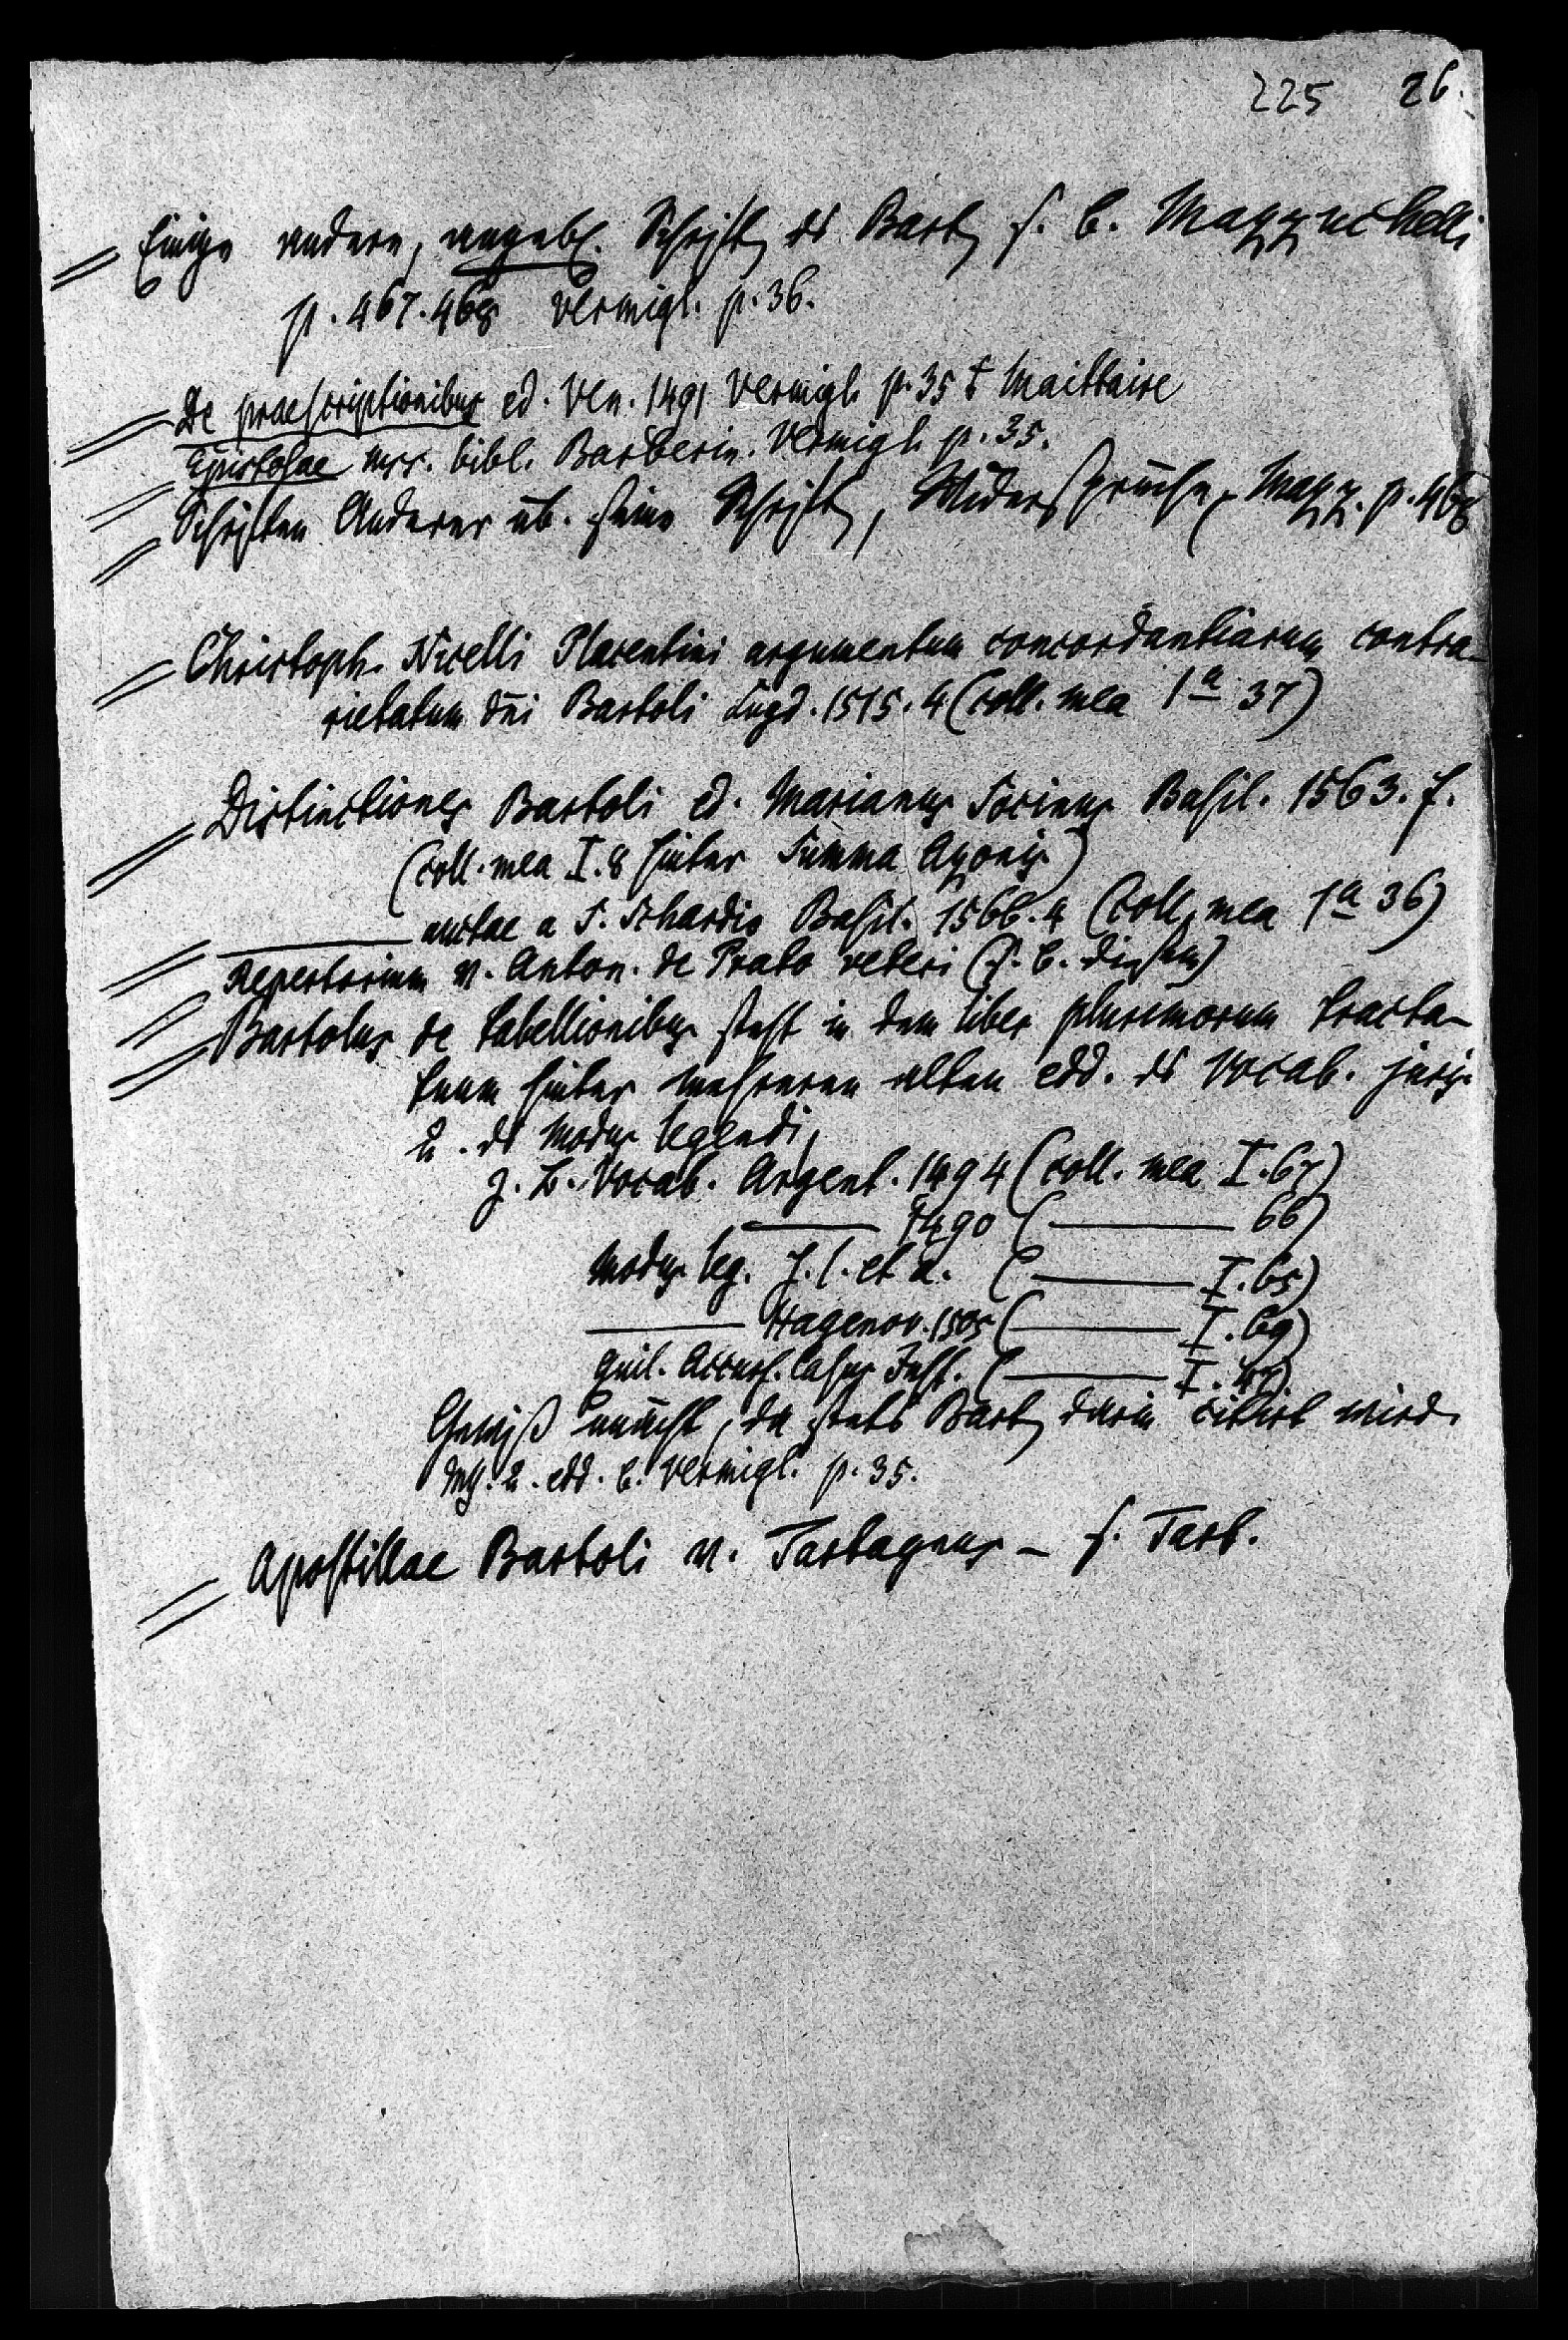 225 26.
Einige andere, angebl. Schriften des Bart. s. b. Mazzuchelli
p. 467. 468 Vermigl. p. 36.
De praescriptionibus ed. Ven. 1491 Vermigl. p. 35 Maittaire
Epistolae mss. bibl. Barberin. Vermigl. p. 35.
Schriften Anderer üb. seine Schriften, Widersprüche, Mazz. p. 468
Christoph. Nicelli Placentini argumentum concordantiarum contra-
rietatum dñi Bartoli Lugd. 1515. 4 (coll. mea 1ª 37)
Distinctiones Bartoli ed. Marianus Socinus Basil. 1563. f.
(coll. mea I. 8 hinter Summa Azonis)
——— auctae a S. Schardio Basil. 1566. 4 (coll. mea 1ª 36)
Repertorium v. Anton. de Prato veteri (s. b. diesem)
Bartolus de tabellionibus steht in dem liber plurimorum tracta-
tuum hinter mehreren alten edd. des Vocab. juris
u. des Modus legendi,
z. B. Vocab. Argent. 1494 (coll. mea I. 67)
——— 1490 (——— 66)
Modus leg. s. l. et a. (——— I. 65)
——— Hagenov. 1505 (——— I. 69)
Guil. Accurs. Casus Inst. (——— I. 47)
Gewiß unächt, da stets Bart. darin citirt wird.
Mss. u. edd. b. Vermigl. p. 35.
Apostillae Bartoli v. Tartagnus – s. Tart.